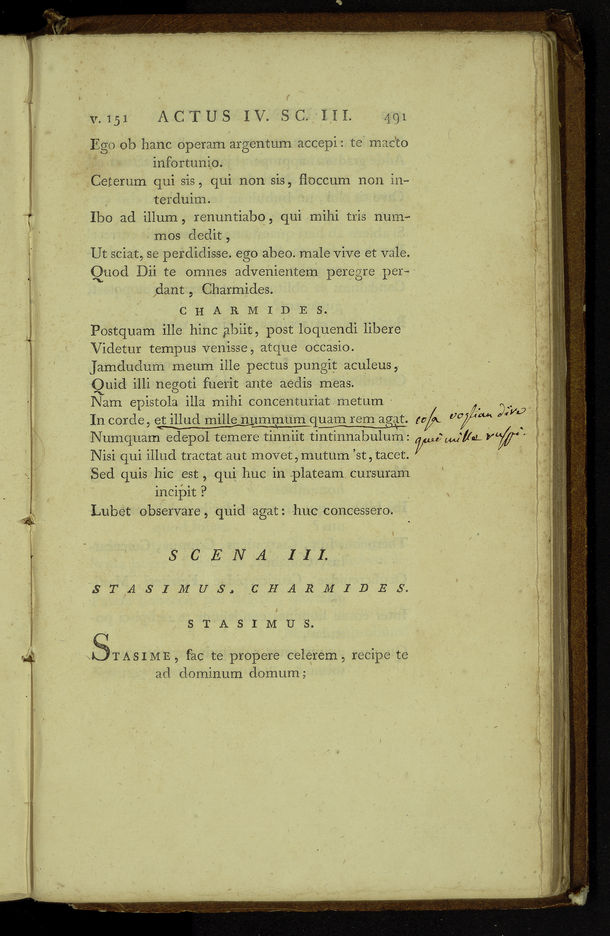 v. 151 ACTUS IV. SC. III. 491
Ego ob hanc operam argentum accepi: te macto
infortunio.
Ceterum qui sis, qui non sis, floccum non in-
terduim.
Ibo ad illum, renuntiabo, qui mihi tris num-
mos dedit,
Ut sciat, se perdidisse. ego abeo. male vive et vale.
Quod Dii te omnes advenientem peregre per-
dant, Charmides.
CHARMIDES.
Postquam ille hinc abiit, post loquendi libere
Videtur tempus venisse, atque occasio.
Jamdudum meum ille pectus pungit aculeus,
Quid illi negoti fuerit ante aedis meas.
Nam epistola illa mihi concenturiat metum
In corde, et illud mille nummum quam rem agat. cosa voglian dire
Numquam edepol temere tinniit tintinnabulum: que' mille ruspi.
Nisi qui illud tractat aut movet, mutum 'st, tacet.
Sed quis hic est, qui huc in plateam cursuram
incipit?
Lubet observare, quid agat: huc concessero.
SCENA III.
STASIMUS, CHARMIDES.
STASIMUS.
STASIME, fac te propere celerem, recipe te
ad dominum domum;